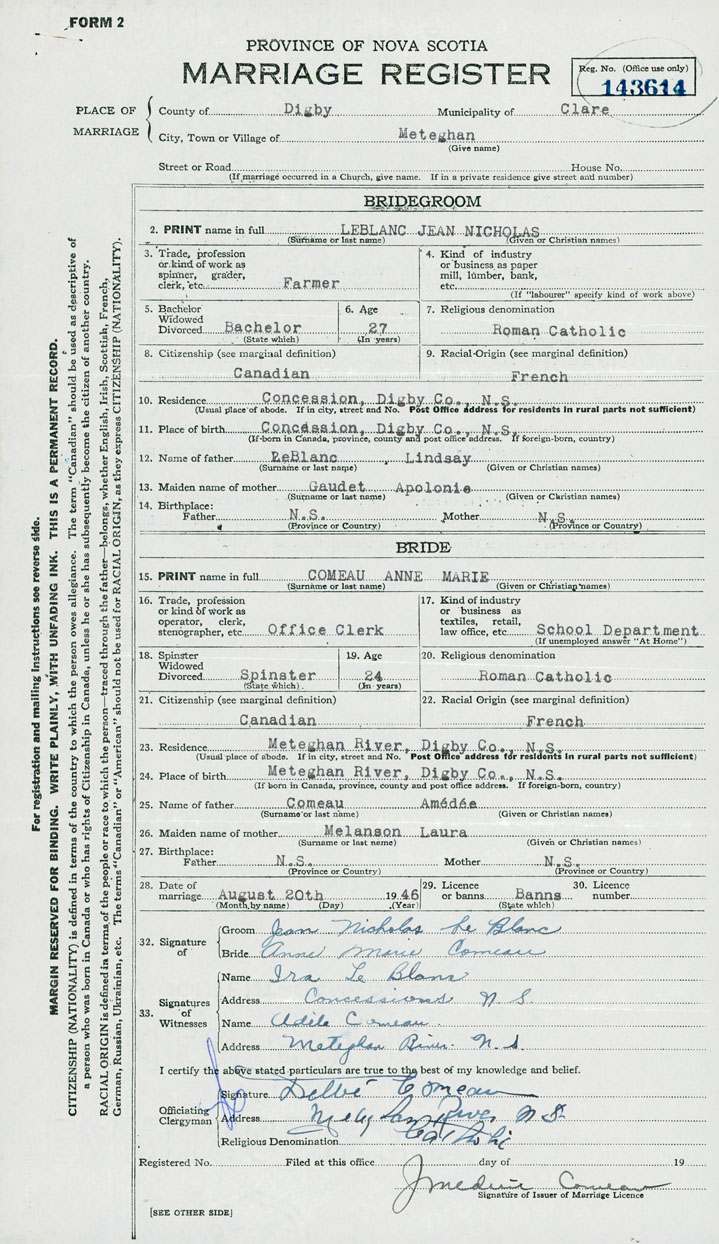 FORM 2
PROVINCE OF NOVA SCOTIA
MARRIAGE REGISTER
Reg. No. (Office use only)
143614
PLACE OF MARRIAGE
County of Digby Municipality of Clare
City, Town or Village of Meteghan
(Give name)
Street or Road House No.
(If marriage occurred in a Church, give name. If in a private residence give street and number)
BRIDEGROOM
2. PRINT name in full LEBLANC JEAN NICHOLAS
(Surname or last name) (Given or Christian names)
3. Trade, profession
or kind of work as
spinner, grader,
clerk, etc. Farmer
4. Kind of industry
or business as paper
mill, lumber, bank,
etc.
(If "labourer" specify kind of work above)
5. Bachelor
Widowed
Divorced Bachelor
(State which)
6. Age
27
(In years)
7. Religious denomination
Roman Catholic
8. Citizenship (see marginal definition)
Canadian
9. Racial Origin (see marginal definition)
French
10. Residence Concession, Digby Co., N.S.
(Usual place of abode. If in city, street and No. Post Office address for residents in rural parts not sufficient)
11. Place of birth Concession, Digby Co., N.S.
(If born in Canada, province, county and post office address. If foreign-born, country)
12. Name of father LeBlanc Lindsay
(Surname or last name) (Given or Christian names)
13. Maiden name of mother Gaudet Apolonie
(Surname or last name) (Given or Christian names)
14. Birthplace:
Father N.S. Mother N.S.
(Province or Country) (Province or Country)
BRIDE
15. PRINT name in full COMEAU ANNE MARIE
(Surname or last name) (Given or Christian names)
16. Trade, profession
or kind of work as
operator, clerk,
stenographer, etc. Office Clerk
17. Kind of industry
or business as
textiles, retail,
law office, etc. School Department
(If unemployed answer "At Home")
18. Spinster
Widowed
Divorced Spinster
(State which)
19. Age
24
(In years)
20. Religious denomination
Roman Catholic
21. Citizenship (see marginal definition)
Canadian
22. Racial Origin (see marginal definition)
French
23. Residence Meteghan River, Digby Co., N.S.
(Usual place of abode. If in city, street and No. Post Office address for residents in rural parts not sufficient)
24. Place of birth Meteghan River, Digby Co., N.S.
(If born in Canada, province, county and post office address. If foreign-born, country)
25. Name of father Comeau Amédée
(Surname or last name) (Given or Christian names)
26. Maiden name of mother Melanson Laura
(Surname or last name) (Given or Christian names)
27. Birthplace:
Father N.S. Mother N.S.
(Province or Country) (Province or Country)
28. Date of
marriage August 20th 1946
(Month by name) (Day) (Year)
29. Licence
or banns Banns
(State which)
30. Licence
number
32. Signature of
Groom Jean Nicholas Le Blanc
Bride Anne Marie Comeau
33. Signatures of Witnesses
Name Ira Le Blanc
Address Concessions N S
Name Adile Comeau
Address Meteghan River N. S.
I certify the above stated particulars are true to the best of my knowledge and belief.
Officiating Clergyman
Signature Comeau
Address Meteghan River N S
Religious Denomination Catholic
Registered No. Filed at this office day of 19
Comeau
Signature of Issuer of Marriage Licence
[SEE OTHER SIDE]
For registration and mailing instructions see reverse side.
MARGIN RESERVED FOR BINDING. WRITE PLAINLY, WITH UNFADING INK. THIS IS A PERMANENT RECORD.
CITIZENSHIP (NATIONALITY) is defined in terms of the country to which the person owes allegiance. The term "Canadian" should be used as descriptive of
a person who was born in Canada or who has rights of Citizenship in Canada, unless he or she has subsequently become the citizen of another country.
RACIAL ORIGIN is defined in terms of the people or race to which the person—traced through the father—belongs, whether English, Irish, Scottish, French,
German, Russian, Ukrainian, etc. The terms "Canadian" or "American" should not be used for RACIAL ORIGIN, as they express CITIZENSHIP (NATIONALITY).